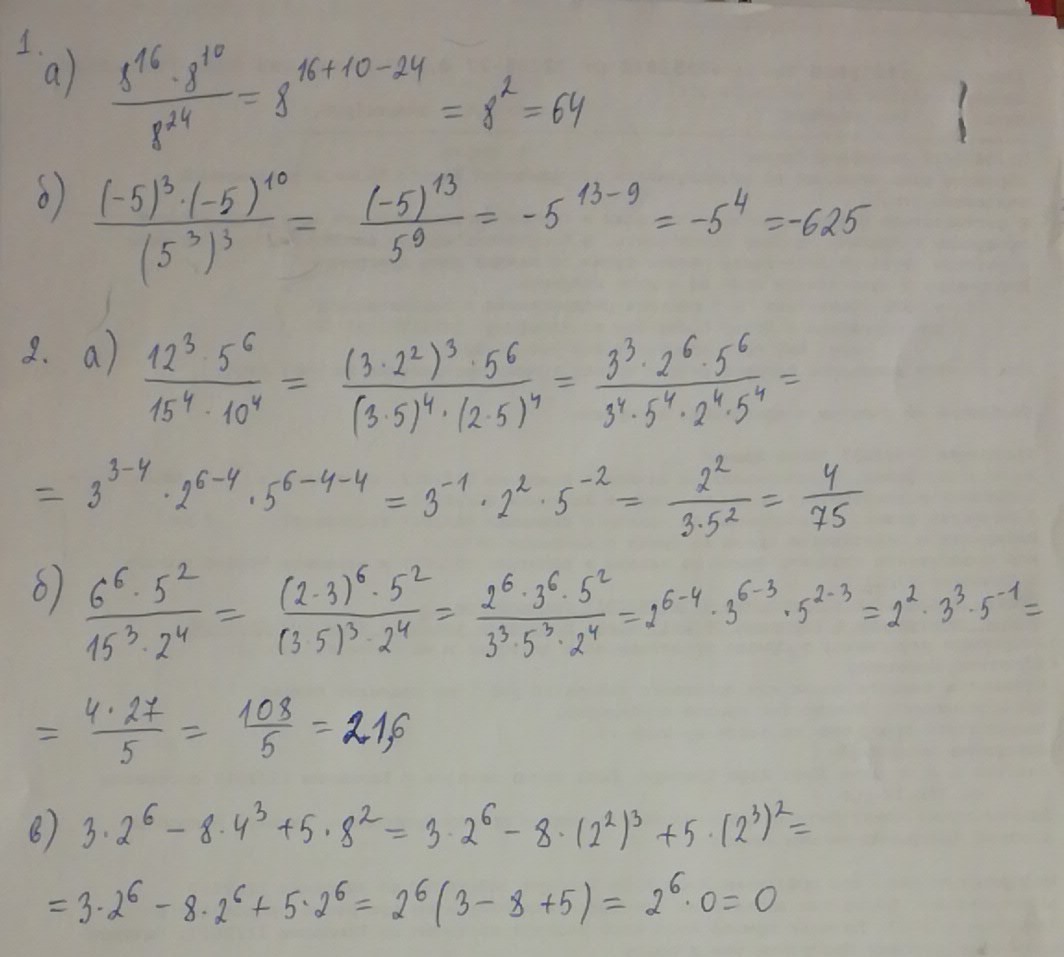 1.
а) 8^16 · 8^10 / 8^24 = 8^16+10−24 = 8^2 = 64
б) (−5)^3 · (−5)^10 / (5^3)^3 = (−5)^13 / 5^9 = −5^13−9 = −5^4 = −625
2. а) 12^3 · 5^6 / 15^4 · 10^4 = (3 · 2^2)^3 · 5^6 / (3·5)^4 · (2·5)^4 = 3^3 · 2^6 · 5^6 / 3^4 · 5^4 · 2^4 · 5^4 =
= 3^3−4 · 2^6−4 · 5^6−4−4 = 3^−1 · 2^2 · 5^−2 = 2^2 / 3·5^2 = 4 / 75
б) 6^6 · 5^2 / 15^3 · 2^4 = (2·3)^6 · 5^2 / (3·5)^3 · 2^4 = 2^6 · 3^6 · 5^2 / 3^3 · 5^3 · 2^4 = 2^6−4 · 3^6−3 · 5^2−3 = 2^2 · 3^3 · 5^−1 =
= 4 · 27 / 5 = 108 / 5 = 21,6
в) 3 · 2^6 − 8 · 4^3 + 5 · 8^2 = 3 · 2^6 − 8 · (2^2)^3 + 5 · (2^3)^2 =
= 3 · 2^6 − 8 · 2^6 + 5 · 2^6 = 2^6 (3 − 8 + 5) = 2^6 · 0 = 0